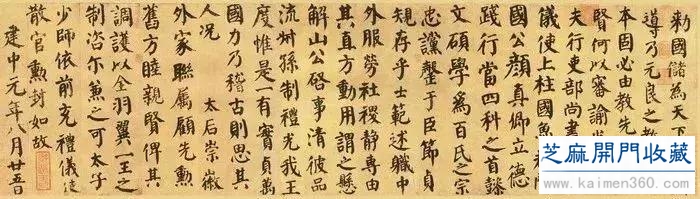 勅國儲為天下
導乃元良之教
本固必由教先
賢何以審諭
夫行吏部尚書
儀使上柱國魯
國公顏真卿立德
踐行當四科之首懿
文碩學為百氏之宗
忠讜罄于臣節貞
規存乎士範述職中
外服勞社稷靜專由
其直方動用謂之懸
解山公啓事清彼品
流叔孫制禮光我王
度惟是一有實貞萬
國力乃稽古則思其
人況 太后崇徽
外家聯屬顧先勳
舊方睦親賢俾其
調護以全羽翼一王之
制咨尔兼之可太子
少師依前充禮儀使
散官勳封如故
建中元年八月廿五日
芝麻開門收藏
www.kaimen360.com